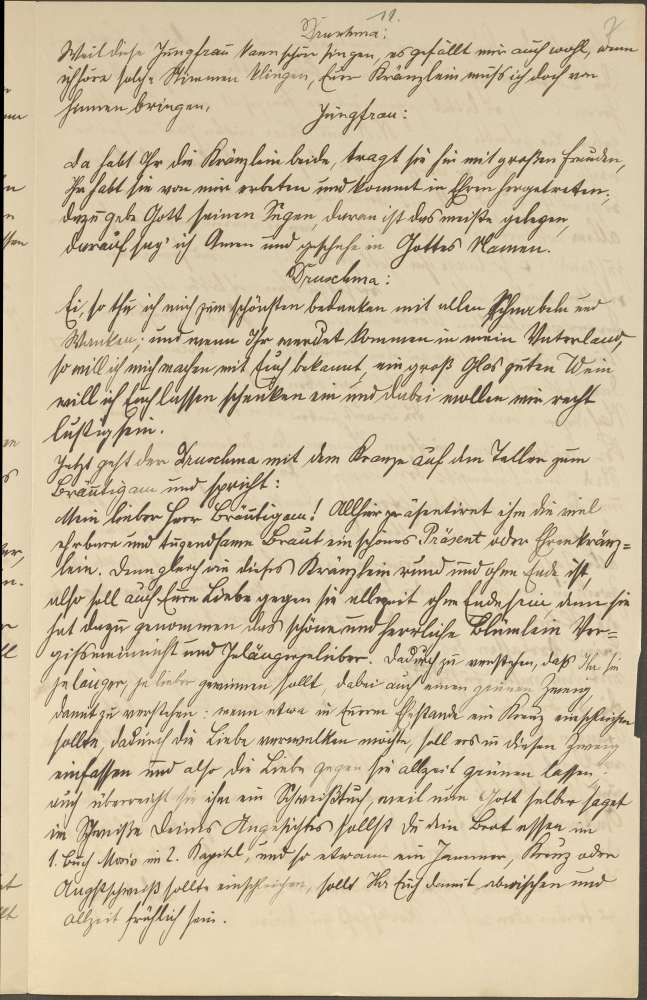 11.
Druschma:
Weil diese Jungfrau kann schön singen, es gefällt mir auch wohl, wenn
ich höre solche Stimmen klingen, Eure Kränzlein muß ich doch von
hinnen bringen.
Jungfrau:
Da habt Ihr die Kränzlein beide, tragt sie hin mit großen Freuden,
Ihr habt sie von mir erbeten und kommt in Ehren hergetreten;
dazu gebe Gott seinen Segen, daran ist das meiste gelegen,
darauf sag' ich Amen und geschehe in Gottes Namen.
Druschma:
Ei, so thu ich mich zum schönsten bedanken mit allen Schnabeln und
Wanken; und wenn Ihr werdet kommen in mein Vaterland,
so will ich mich machen mit Euch bekannt, ein groß Glas guten Wein
will ich Euch lassen schenken ein und dabei wollen wir recht
lustig sein.
Jetzt geht der Druschma mit dem Kranze auf dem Teller zum
Bräutigam und spricht:
Mein lieber Herr Bräutigam! Allhier präsentiret ihm die viel
ehrbare und tugendsame Braut ein schönes Präsent oder Ehrenkränz=
lein. Denn gleich wie dieses Kränzlein rund und ohne Ende ist,
also soll auch Eure Liebe gegen sie allezeit ohne Ende sein denn sie
hat dazu genommen das schöne und herrliche Blümlein Ver=
gissmeinnicht und Jelängerjelieber. Dadurch zu verstehen, daß Ihr sie
je länger, je lieber gewinnen sollt, dabei auch einen grünen Zweig,
damit zu verstehen: wenn etwa in Eurem Ehestande ein Kreuz einschleichen
sollte, dadurch die Liebe verwelken möchte, soll er's in diesen Zweig
einfassen und also die Liebe gegen sie allzeit grünen lassen.
auch überreicht sie ihm ein Schweißtuch, weil nun Gott selber saget
im Schweiße Deines Angesichtes sollst Du dein Brot essen im
1. Buch Mosis im 2. Kapitel, und so etwann ein Jammer, Kreuz oder
Angstschweiß sollte einschleichen, sollt Ihr Euch damit abwischen und
allzeit fröhlich sein.